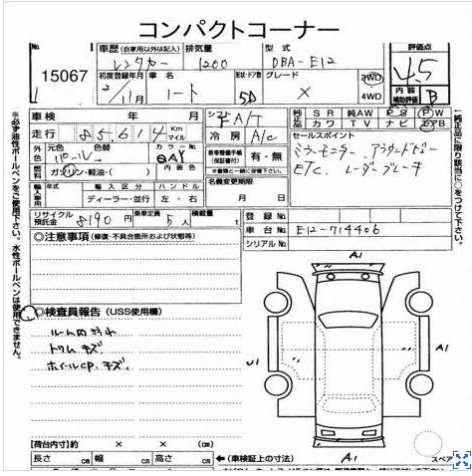 コンパクトコーナー
No.
15067
車歴 (自家用以外は記入)
レンタカー
排気量
1200
型式
DBA-E12
評価点
4.5
初度登録年月
2/11月
車名
ノート
形状・ドア数
5D
グレード
X
2WD
4WD
内装
補助評価
B
車検 年 月
シフト
F A/T
純正 SR 純AW PS PW
カワ TV ナビ
走行 85,614 Km
マイル
冷房
A/C
セールスポイント
外色
元色
色替
カラーNo.
パール
QAY
内装色
新車整備手帳
(保証書付)
有・無
ミラーモニター アラウンドビュー
ETC. レーダーブレーキ
燃料
ガソリン・軽油・( )
※書類と一緒に保管下さい。
輸入車用
年式
輸入区分
ハンドル
名義変更期限
ディーラー・並行
左・右
月 日
リサイクル
預託金
8190 円
乗車定員
5 人
積載量
t
登録No.
車台No.
E12-714406
シリアルNo.
◎注意事項 (修復・不具合箇所および状態等)
◎検査員報告 (USS使用欄)
ルーム内汚れ
トリムキズ
ホイールCP、キズ
A1
U1
A1
A1
スペア
【荷台内寸】 × × (
長さ cm 幅 cm 高さ cm
←(車検証上の寸法)
※必ず油性ボールペンをご使用下さい。水性ボールペンは使用できません。
純正品のみ限り該当に○をつけて下さい。